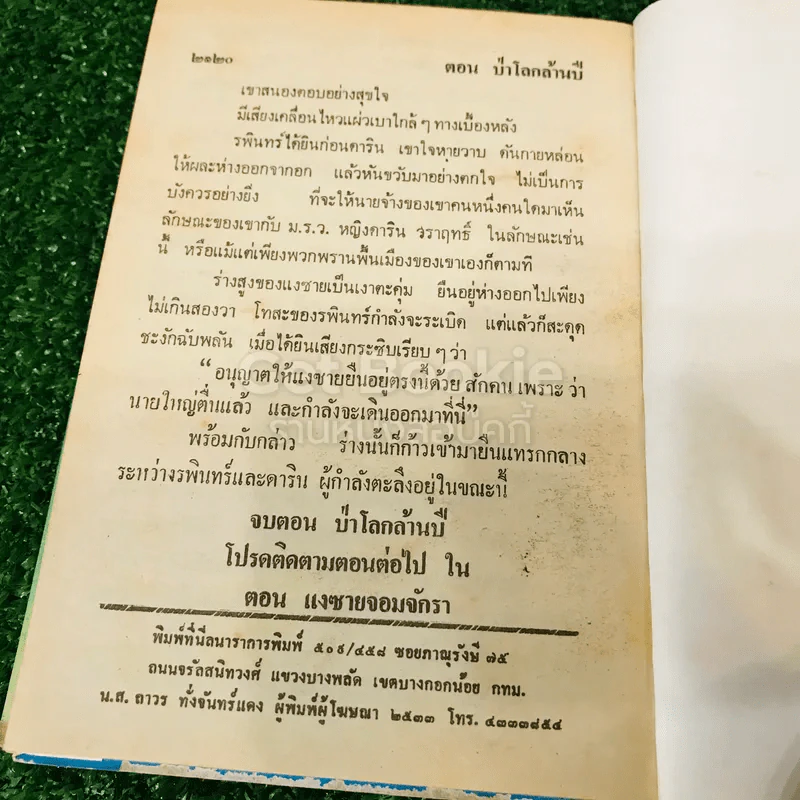 ๒๑๒๐ ตอน ป่าโลกล้านปี
เขาสนองตอบอย่างสุขใจ
มีเสียงเคลื่อนไหวแผ่วเบาใกล้ ๆ ทางเบื้องหลัง
รพินทร์ได้ยินก่อนดาริน เขาใจหายวาบ ดันกายหล่อน
ให้ผละห่างออกจากอก แล้วหันขวับมาอย่างตกใจ ไม่เป็นการ
บังควรอย่างยิ่ง ที่จะให้นายจ้างของเขาคนหนึ่งคนใดมาเห็น
ลักษณะของเขากับ ม.ร.ว. หญิงดาริน วราฤทธิ์ ในลักษณะเช่น
นี้ หรือแม้แต่เพียงพวกพรานพื้นเมืองของเขาเองก็ตามที
ร่างสูงของแงซายเป็นเงาตะคุ่ม ยืนอยู่ห่างออกไปเพียง
ไม่เกินสองวา โทสะของรพินทร์กำลังจะระเบิด แต่แล้วก็สะดุด
ชะงักฉับพลัน เมื่อได้ยินเสียงกระซิบเรียบ ๆ ว่า
“อนุญาตให้แงซายยืนอยู่ตรงนี้ด้วย สักคน เพราะ ว่า
นายใหญ่ตื่นแล้ว และกำลังจะเดินออกมาที่นี่”
พร้อมกับกล่าว ร่างนั้นก็ก้าวเข้ามายืนแทรกกลาง
ระหว่างรพินทร์และดาริน ผู้กำลังตะลึงอยู่ในขณะนี้
จบตอน ป่าโลกล้านปี
โปรดติดตามตอนต่อไป ใน
ตอน แงซายจอมจักรา
พิมพ์ที่นีลนาราการพิมพ์ ๕๐๙/๔๕๘ ซอยภาณุรังษี ๗๕
ถนนจรัลสนิทวงศ์ แขวงบางพลัด เขตบางกอกน้อย กทม.
น.ส. ถาวร ทั่งจันทร์แดง ผู้พิมพ์ผู้โฆษณา ๒๕๓๓ โทร. ๔๓๓๓๘๕๔
Get Bookie